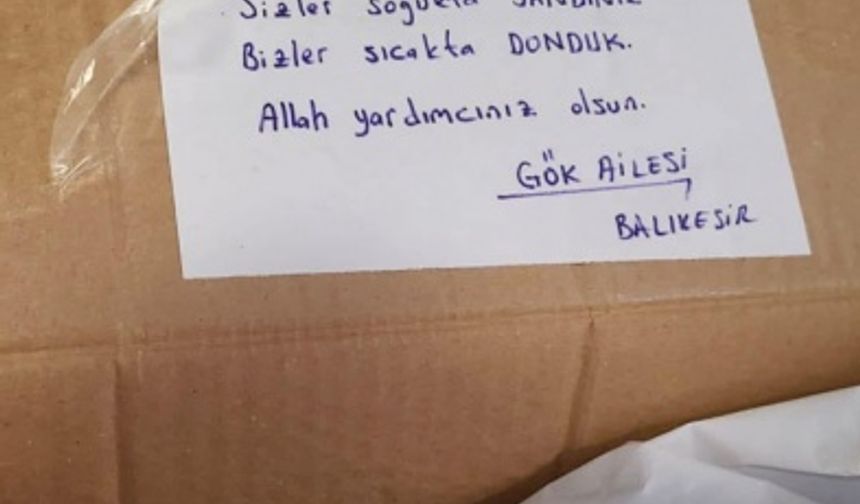 Sizler soğukta YANDINIZ
Bizler sıcakta DONDUK.
Allah yardımcınız olsun.
GÖK AİLESİ
BALIKESİR